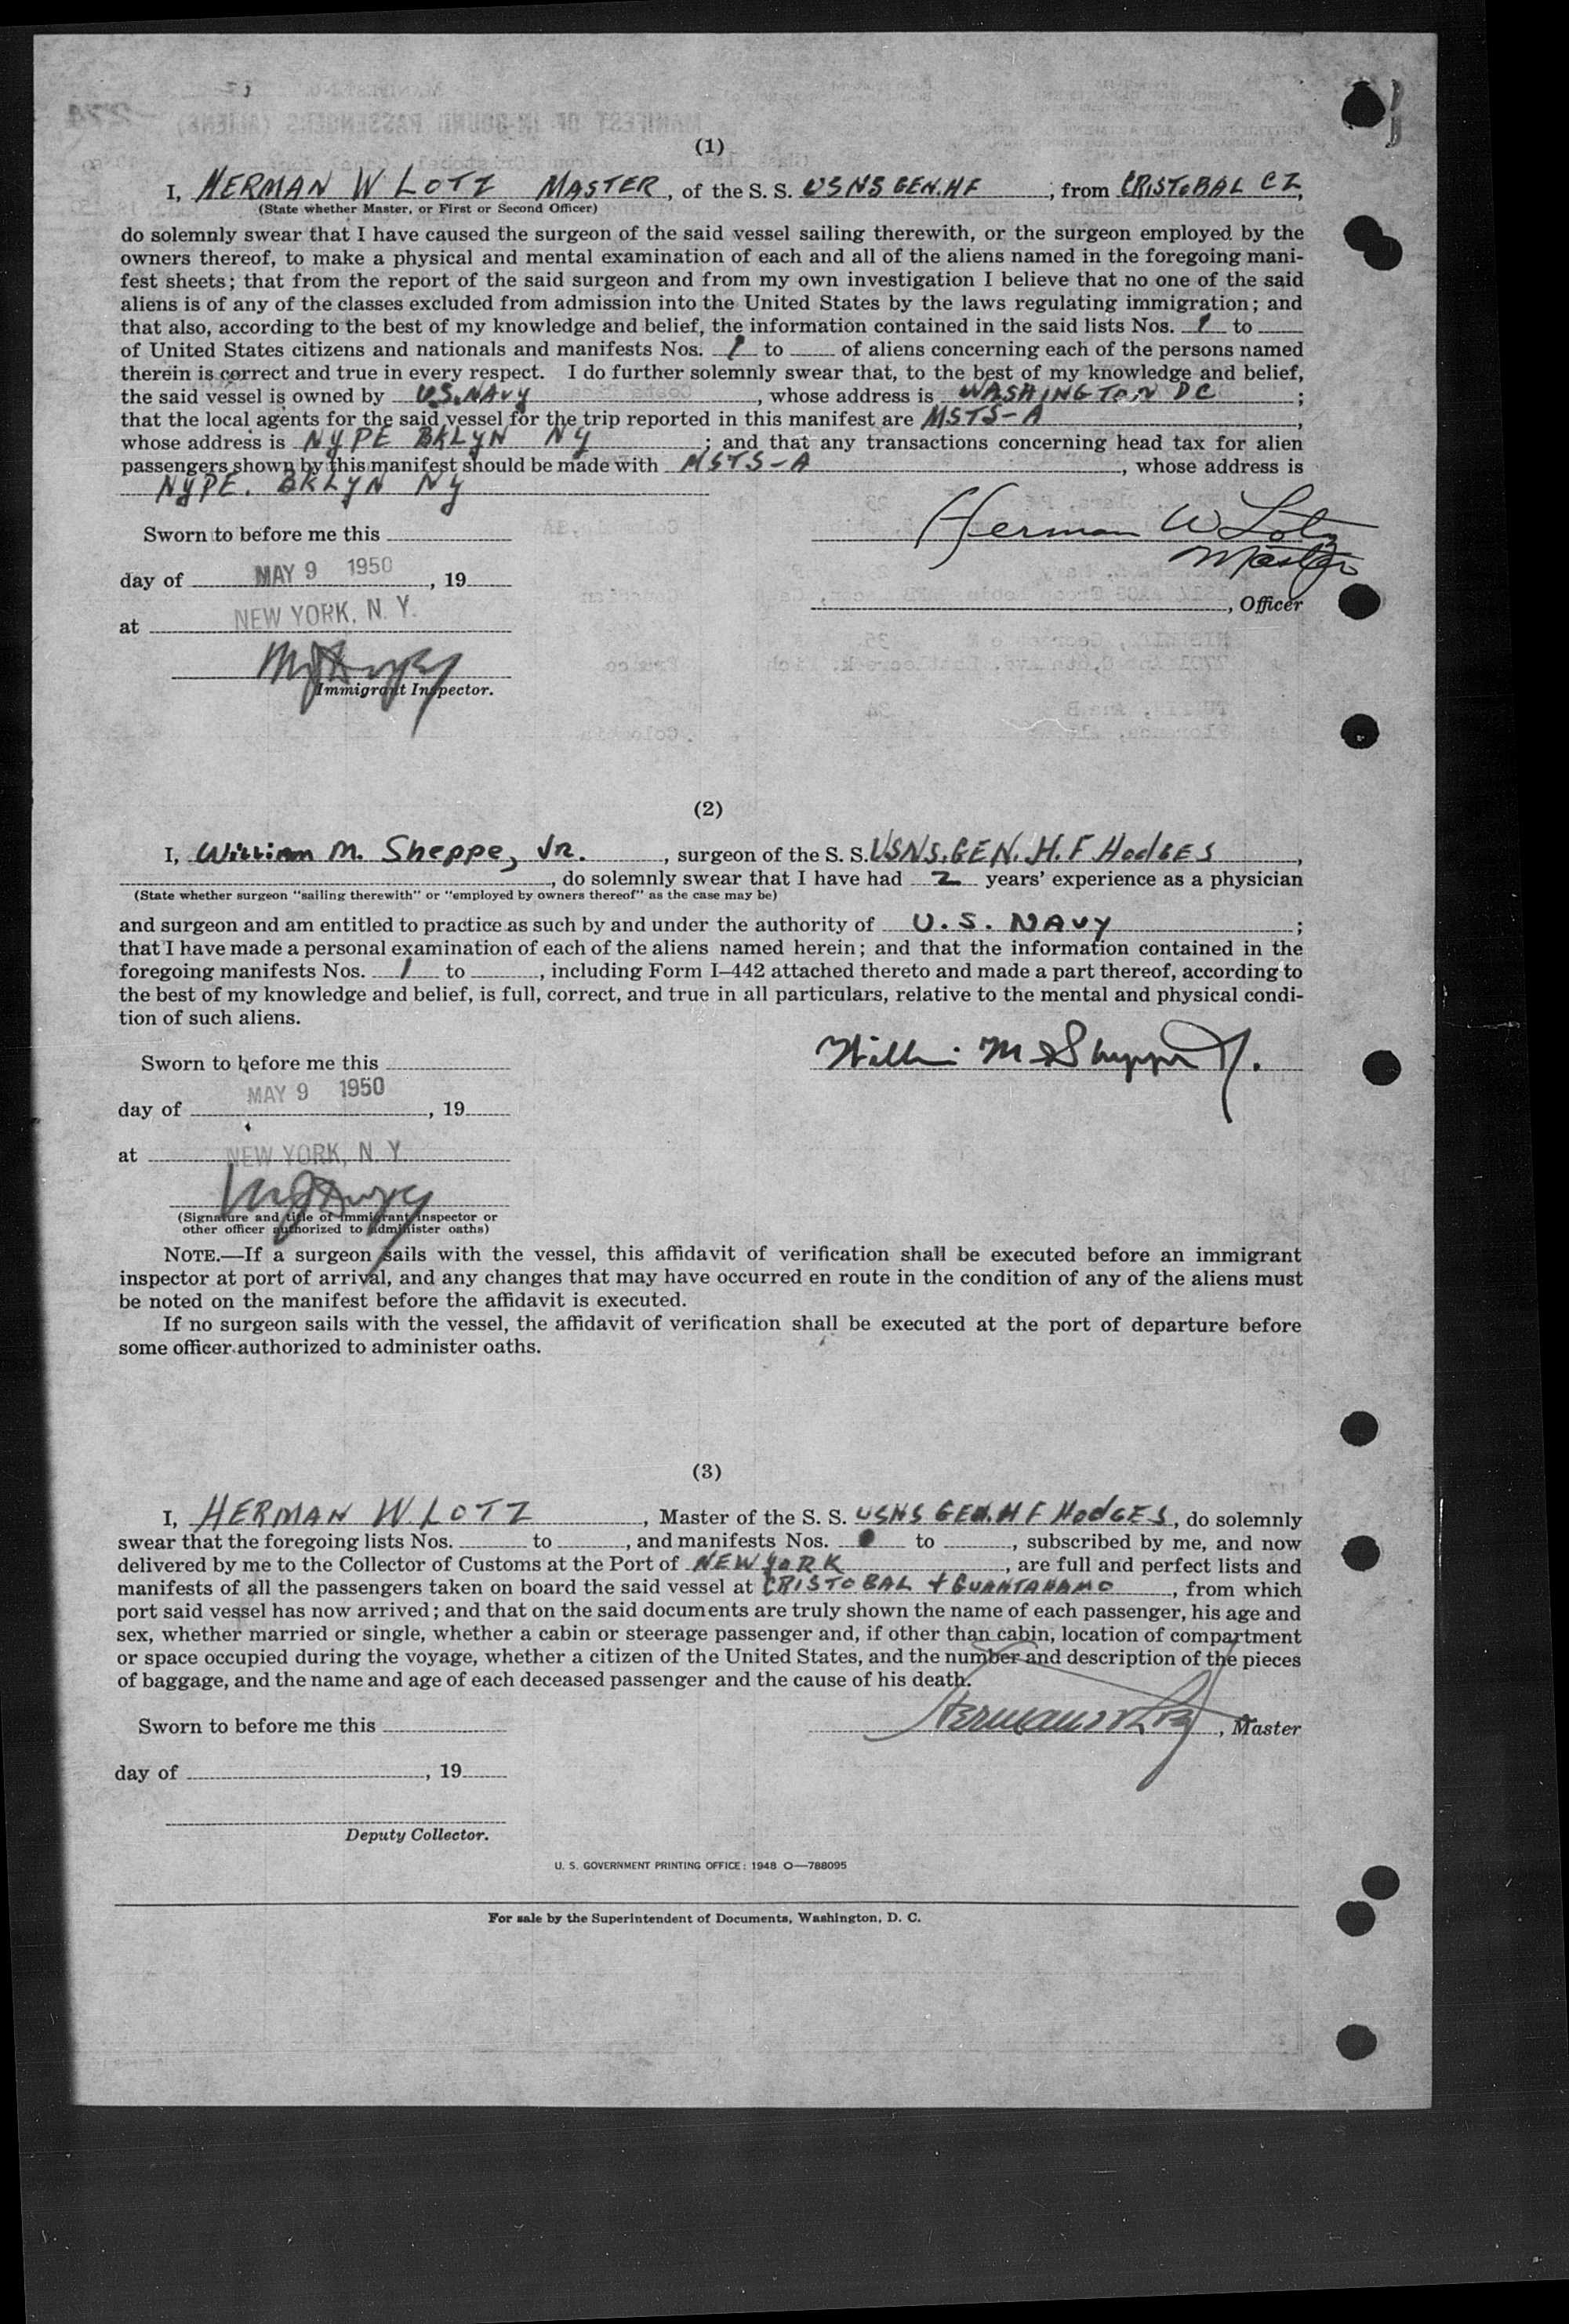 (1)
I, HERMAN W LOTZ MASTER, of the S. S. USNS GEN. HF; from CRISTOBAL CZ,
(State whether Master, or First or Second Officer)
do solemnly swear that I have caused the surgeon of the said vessel sailing therewith, or the surgeon employed by the
owners thereof, to make a physical and mental examination of each and all of the aliens named in the foregoing mani-
fest sheets; that from the report of the said surgeon and from my own investigation I believe that no one of the said
aliens is of any of the classes excluded from admission into the United States by the laws regulating immigration; and
that also, according to the best of my knowledge and belief, the information contained in the said lists Nos. 1 to
of United States citizens and nationals and manifests Nos. 1 to of aliens concerning each of the persons named
therein is correct and true in every respect. I do further solemnly swear that, to the best of my knowledge and belief,
the said vessel is owned by U.S. NAVY, whose address is WASHINGTON DC;
that the local agents for the said vessel for the trip reported in this manifest are MSTS-A,
whose address is NYPE BKLYN NY; and that any transactions concerning head tax for alien
passengers shown by this manifest should be made with MSTS-A, whose address is
NYPE. BKLYN NY
Sworn to before me this
Herman W Lotz
Master
day of MAY 9 1950, 19
, Officer
at NEW YORK, N. Y.
Immigrant Inspector.
(2)
I, William M. Sheppe, Jr., surgeon of the S. S. USNS. GEN. H. F HodGES,
, do solemnly swear that I have had 2 years' experience as a physician
(State whether surgeon "sailing therewith" or "employed by owners thereof" as the case may be)
and surgeon and am entitled to practice as such by and under the authority of U. S. NAVY;
that I have made a personal examination of each of the aliens named herein; and that the information contained in the
foregoing manifests Nos. 1 to , including Form I-442 attached thereto and made a part thereof, according to
the best of my knowledge and belief, is full, correct, and true in all particulars, relative to the mental and physical condi-
tion of such aliens.
Sworn to before me this
William M Sheppe Jr.
day of MAY 9 1950, 19
at NEW YORK, N. Y.
(Signature and title of immigrant inspector or
other officer authorized to administer oaths)
NOTE.—If a surgeon sails with the vessel, this affidavit of verification shall be executed before an immigrant
inspector at port of arrival, and any changes that may have occurred en route in the condition of any of the aliens must
be noted on the manifest before the affidavit is executed.
If no surgeon sails with the vessel, the affidavit of verification shall be executed at the port of departure before
some officer authorized to administer oaths.
(3)
I, HERMAN W. LOTZ, Master of the S. S. USNS GEN. H F HodGES, do solemnly
swear that the foregoing lists Nos. to , and manifests Nos. to , subscribed by me, and now
delivered by me to the Collector of Customs at the Port of NEW YORK, are full and perfect lists and
manifests of all the passengers taken on board the said vessel at CRISTOBAL + GUANTANAMO, from which
port said vessel has now arrived; and that on the said documents are truly shown the name of each passenger, his age and
sex, whether married or single, whether a cabin or steerage passenger and, if other than cabin, location of compartment
or space occupied during the voyage, whether a citizen of the United States, and the number and description of the pieces
of baggage, and the name and age of each deceased passenger and the cause of his death.
Sworn to before me this
Herman W Lotz, Master
day of , 19
Deputy Collector.
U. S. GOVERNMENT PRINTING OFFICE: 1948 O—788095
For sale by the Superintendent of Documents, Washington, D. C.